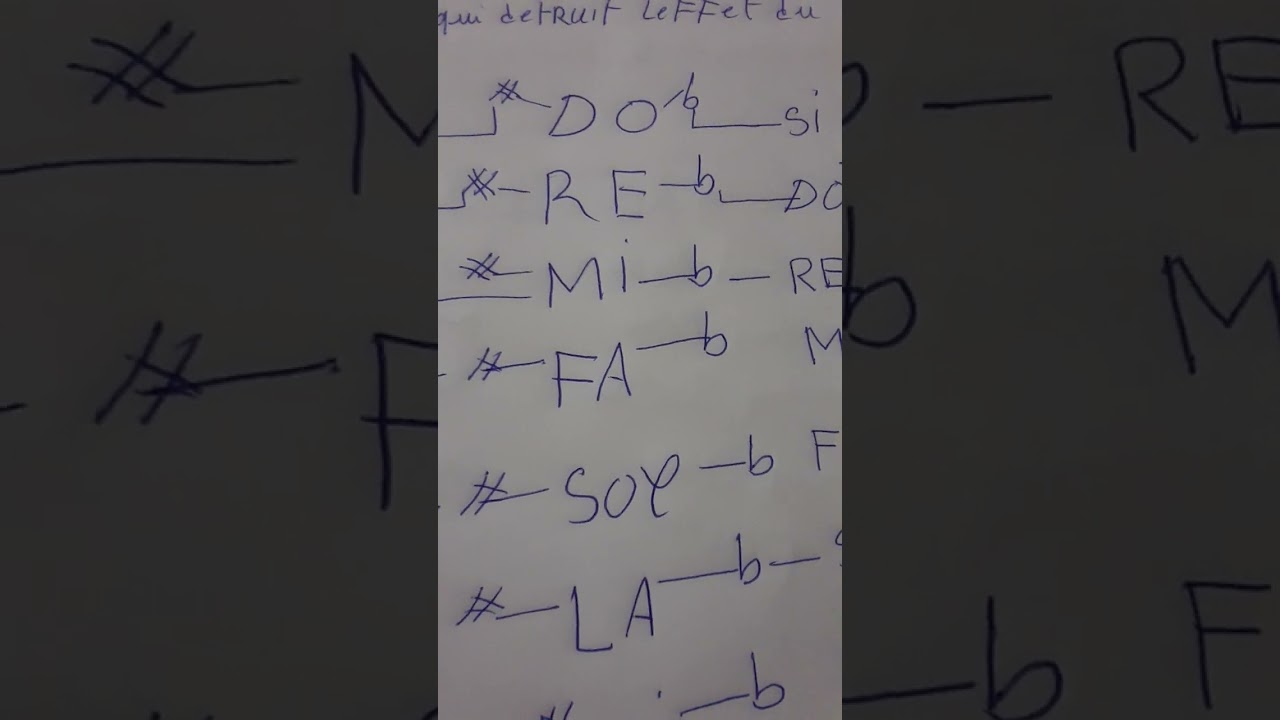 qui detruit l'effet du
# DO b si
# RE b DO
# Mi b RE
# FA b M
# SOL b F
# LA b
# b